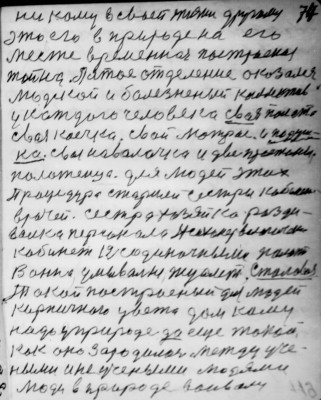 ни кому в своей жизни другому 74
этого в природе на его
месте временная построена
Пятое отделение оказался
людской и болезненый
у каждого человека своя палата
своя коечка. свой матрас. и подуш-
ка. своя наволочка и две простыни.
полотенца. для людей этих
процедура старшей сестры кабинет
врачей. сестра хозяйка разде-
валка персонала
кабинет 12 с одиночными палат
Ванна умывалки туалет. Столовая
Такой построеный для людей
кирпичного цвета дом кому
надо природе да еще такой
как оно зародилось между уче-
ными и не учеными людями
люди в природе